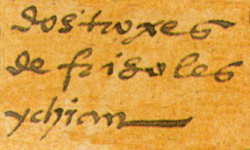 dos troxes
de frisoles
ychian